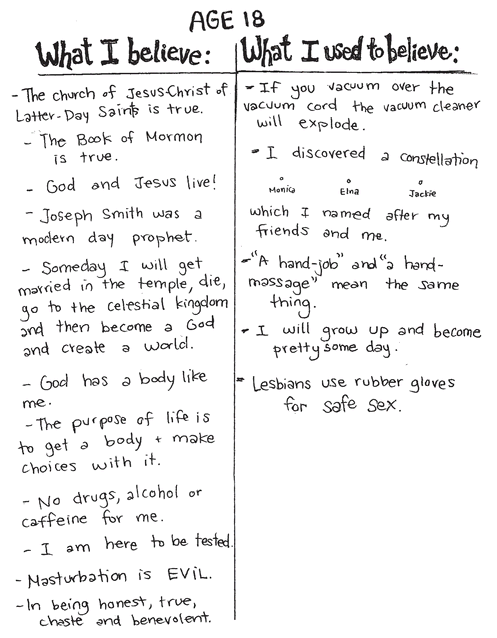 AGE 18
What I believe:
- The church of Jesus Christ of
Latter-Day Saints is true.
- The Book of Mormon
is true.
- God and Jesus live!
- Joseph Smith was a
modern day prophet.
- Someday I will get
married in the temple, die,
go to the celestial kingdom
and then become a God
and create a world.
- God has a body like
me.
- The purpose of life is
to get a body + make
choices with it.
- No drugs, alcohol or
caffeine for me.
- I am here to be tested.
- Masturbation is EViL.
- In being honest, true,
chaste and benevolent.
What I used to believe:
- If you vacuum over the
vacuum cord the vacuum cleaner
will explode.
- I discovered a constellation
Monica Elna Jackie
which I named after my
friends and me.
- "A hand-job" and "a hand-
massage" mean the same
thing.
- I will grow up and become
pretty some day.
- Lesbians use rubber gloves
for safe sex.